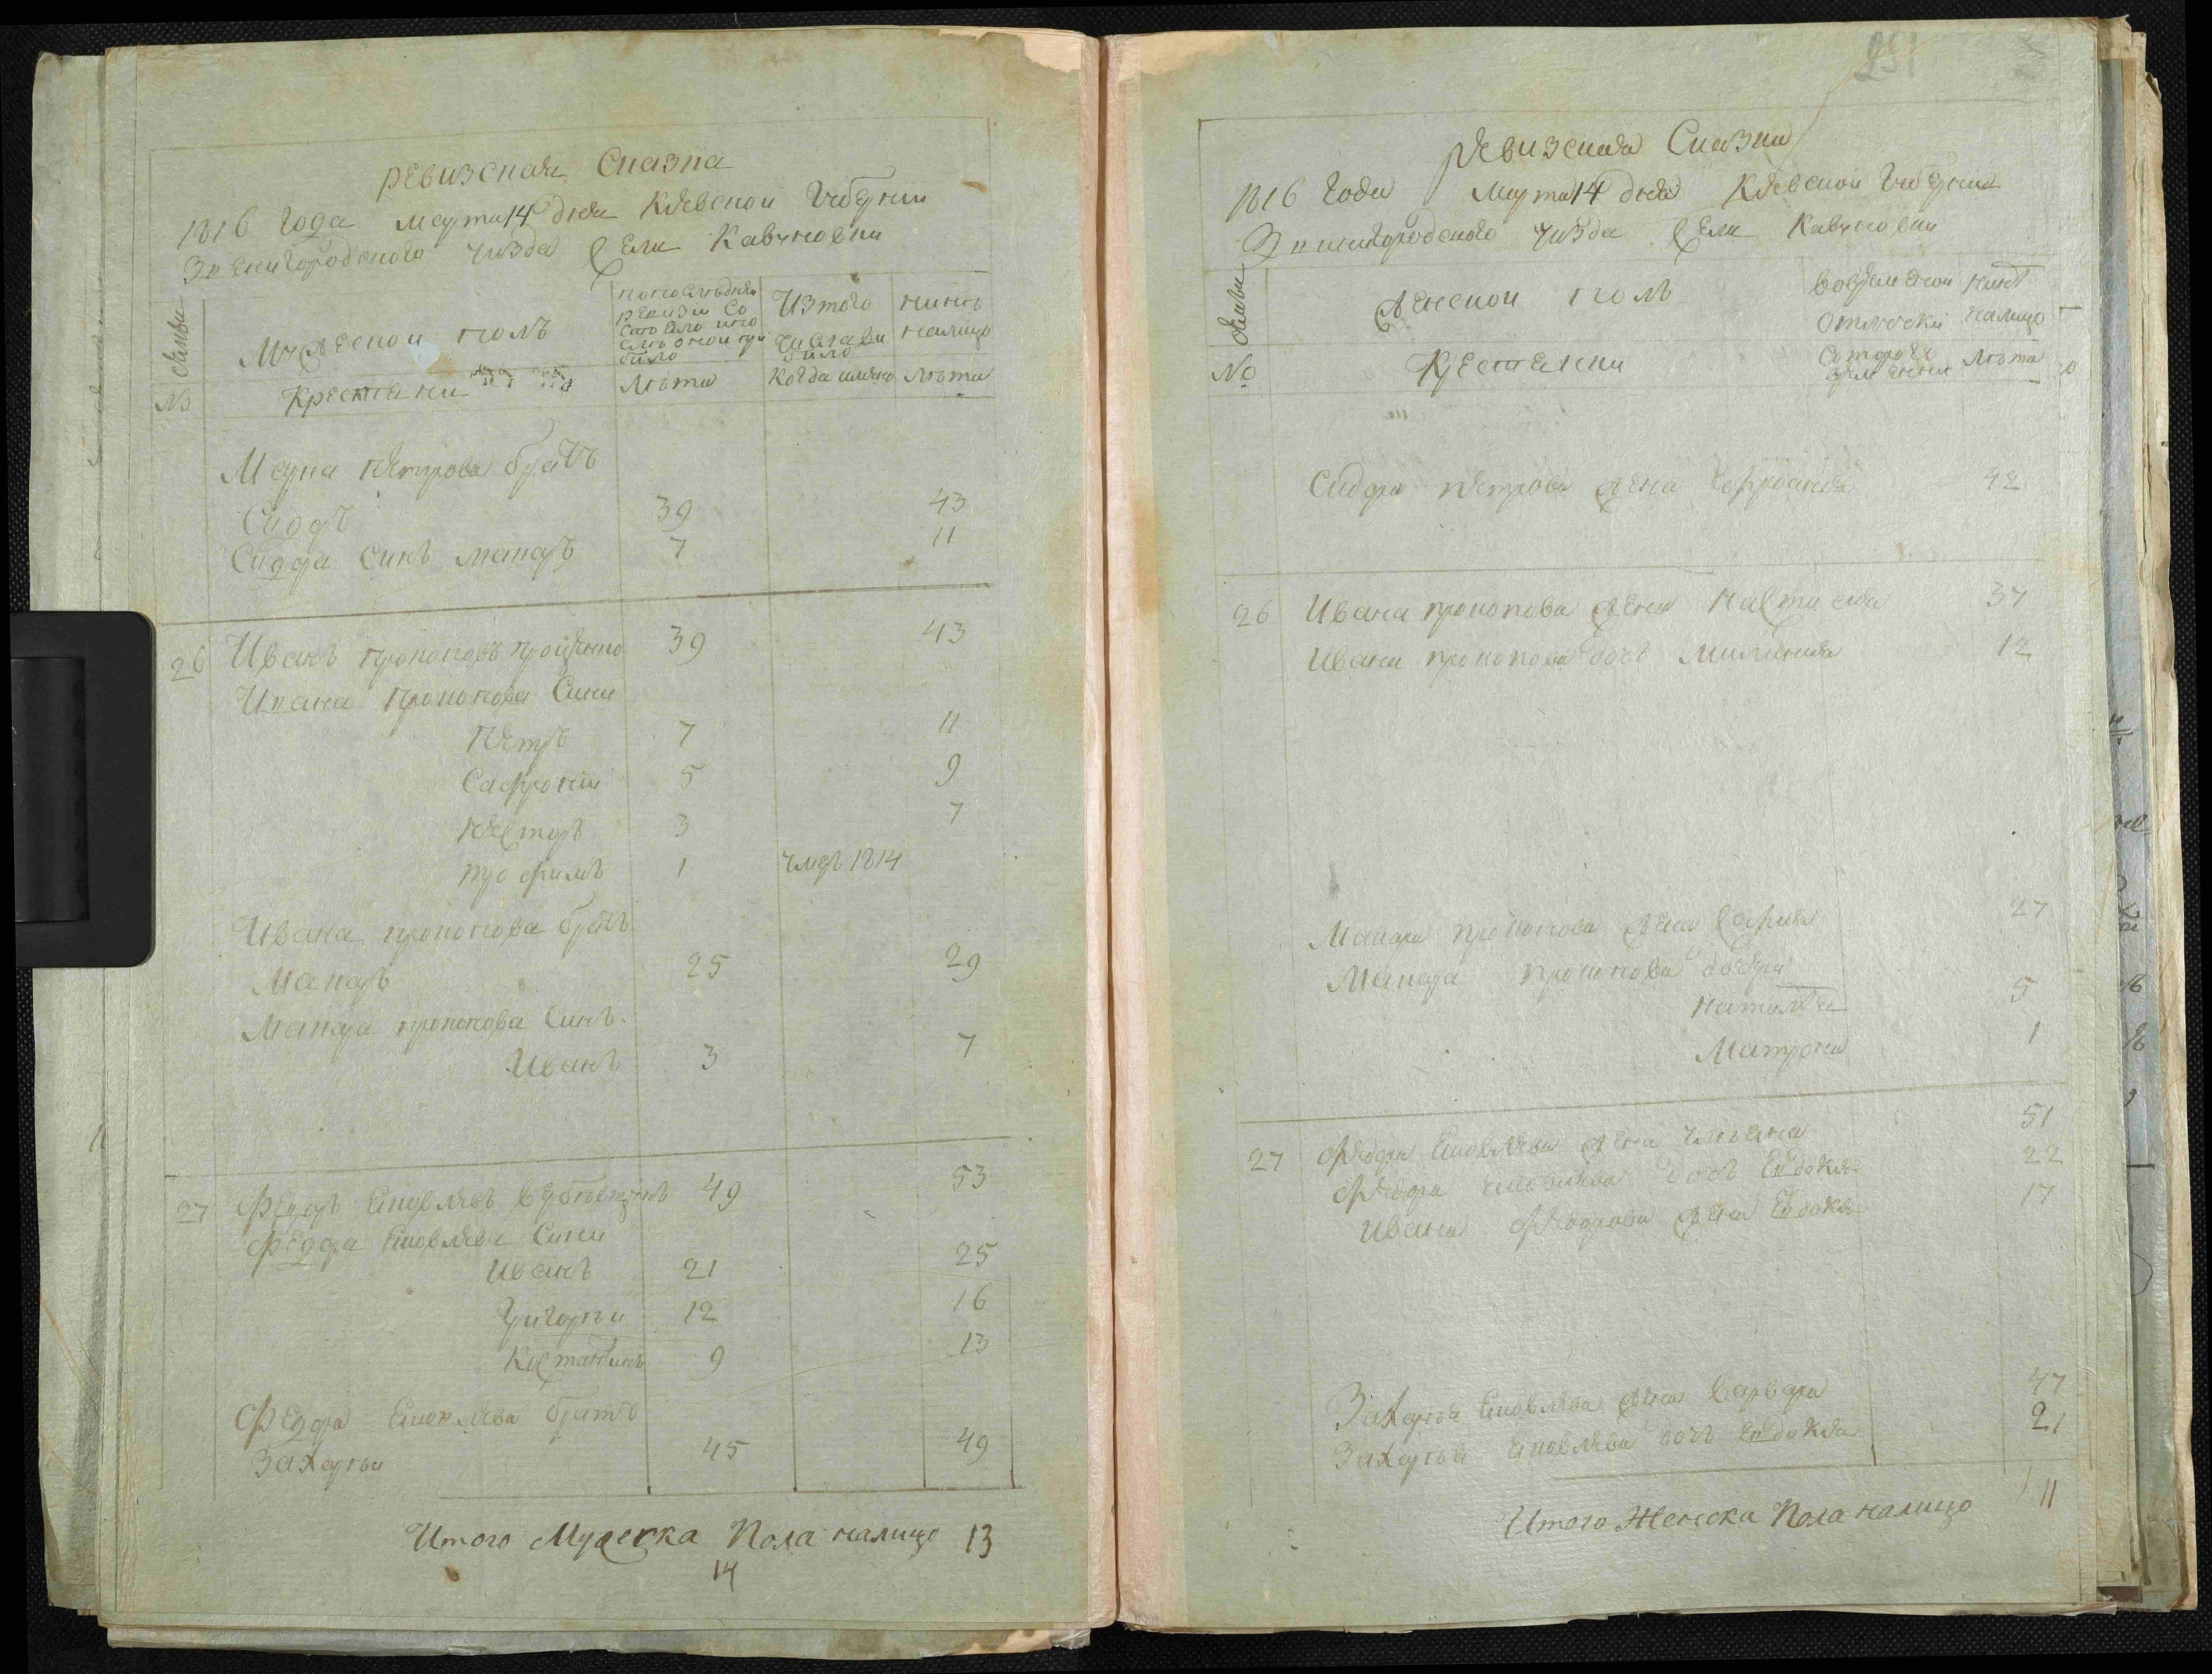 ревизская Сказка
1816 Года Марта 14 дня Киевской Губернии
Звенигородского уизда Села Кавуновки
Семьи
№
Мужеской полъ
Крестяни
по последней
ревизи Со
было
Лѣта
Изтого
числа ви
било
Когда имено
нинѣ
налицо
Лѣта
Марка Петрова братъ
Сидоръ 39 43
Сидора Синъ макаръ 7 11
26 Иванъ прокоповъ проценко 39 43
Ивана Прокопова Сини
Петръ 7 11
Сафроній 5 9
Несторъ 3 7
трофимъ 1 умеръ 1814
Ивана прокопова братъ
Макаръ 25 29
Макара прокопова Синъ
Иванъ 3 7
27 Федоръ Ековлевъ 49 53
Федора Ековлева Сини
Иванъ 21 25
Григорѣи 12 16
Костантинъ 9 13
Федора Ековлева братъ
Захарѣи 45 49
Итого Мужеска Пола налицо 13
14
251
ревизская Сказка
1816 Года Марта 14 дня Киевской Губернии
Звенигородского уизда Села Кавуновки
Семьи
№
Женской полъ
Крестянки
Вовременой
отлочки
Которого
времени
нинѣ
налицо
Лѣта
Сидора Петрова жена Ефросиния 42
26 Ивана прокопова жена Настасия 37
Ивана прокопова дочь Милания 12
Макара прокопова жена София 27
Макара прокопова дочери
Наталия 5
Матрона 1
27 Федора Ековлева жена улияна 51
Федора Ековлева дочь Евдокия 22
Ивана Федорова жена Евдокия 17
Захарѣя Ековлева жена Варвара 47
Захарѣя Ековлева дочь Евдокия 21
Итого Женска Пола налицо 11